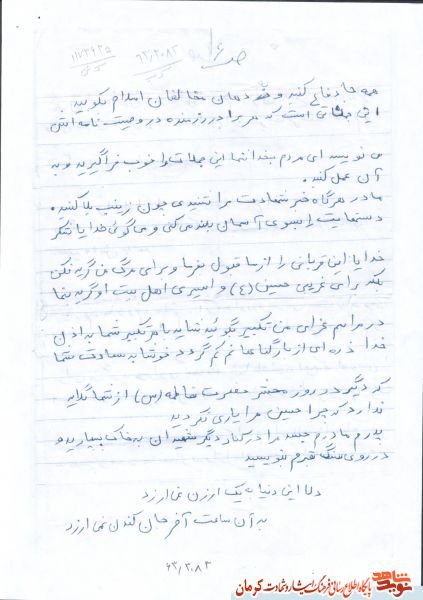 ص ۶
۶۳/۳۰۸۳
۱۱۷۳۹۲۵
همه جا دفاع کنید و تو دهان مخالفان امام بکوبید
این جملاتی است که هر برادر رزمنده در وصیت نامه اش
می نویسد ای مردم بخدا شما این جملات را خوب فرا گیرید و به
آن عمل کنید.
مادر هرگاه خبر شهادت مرا شنیدی چون زینب بلا کشیده.
دستهایت را بسوی آسمان بلند می کنی و می گوئی خدایا شکر
خدایا این قربانی را از ما قبول بفرما و برای مرگ من گریه نکن
بلکه برای غریبی حسین (ع) و اسیری اهل بیت او گریه بنما
در مراسم عزای من تکبیر بگوئید شاید با هر تکبیر شما به اذن
خدا ذره ای از بار گناهانم کم گردد خوشا به سعادت شما
که دیگر در روز محشر حضرت فاطمه (س) از شما گلایه
ندارد که چرا حسین مرا یاری نکردید
پدرم مادرم جسد مرا در کنار دیگر شهیدان به خاک بسپارید و
در روی سنگ قبرم بنویسید
دلا این دنیا به یک ارزن نمی ارزد
به آن ساعت آخر جان کندن نمی ارزد
۶۳/۳۰۸۳
نوید شاهد
پایگاه اطلاع رسانی فرهنگ ایثار و شهادت کرمان